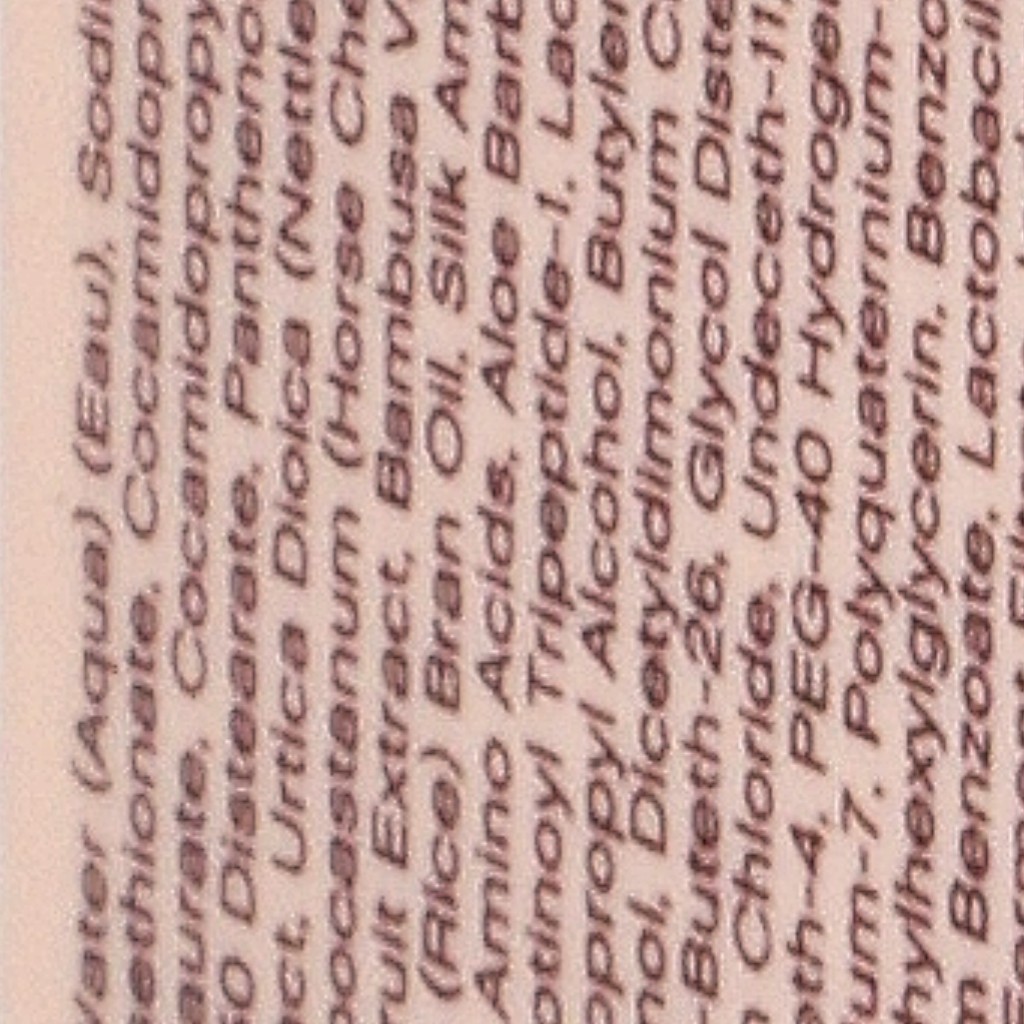 (Aqua) (Eau), Sodi
ethionate, Cocamidopr
aurate, Cocamidopropy
60 Distearate, Pantheno
act, Urtica Dioica (Nettle
pocastanum (Horse Che
ruit Extract, Bambusa V
(Rice) Bran Oil, Silk Am
Amino Acids, Aloe Barb
otinoyl Tripeptide-1, Lac
opropyl Alcohol, Butylen
nol, Dicetyldimonium C
-Buteth-26, Glycol Diste
Chloride, Undeceth-11,
eth-4, PEG-40 Hydroge
um-7, Polyquaternium-
hylhexylglycerin, Benzo
m Benzoate, Lactobacill